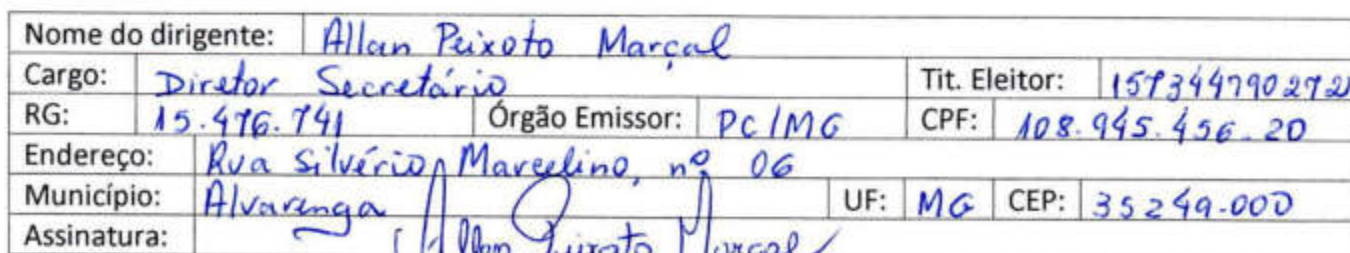 Nome do dirigente: Allan Peixoto Marçal
Cargo: Diretor Secretário Tit. Eleitor: 157344790272
RG: 15.476.741 Órgão Emissor: PC/MG CPF: 108.945.456-20
Endereço: Rua Silvério Marcelino, nº 06
Município: Alvarenga UF: MG CEP: 35249-000
Assinatura: Allan Peixoto Marçal